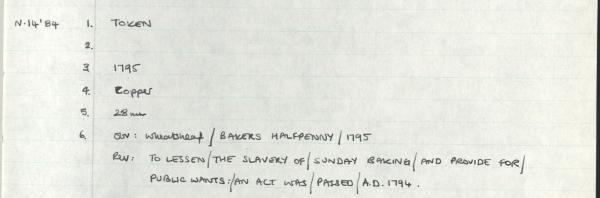 N.14'84 1. TOKEN
2.
3. 1795
4. Copper
5. 28mm
6. Obv: Wheatsheaf / BAKERS HALFPENNY / 1795
Rev: TO LESSEN / THE SLAVERY OF / SUNDAY BAKING / AND PROVIDE FOR /
PUBLIC WANTS: / AN ACT WAS / PASSED / A.D. 1794.